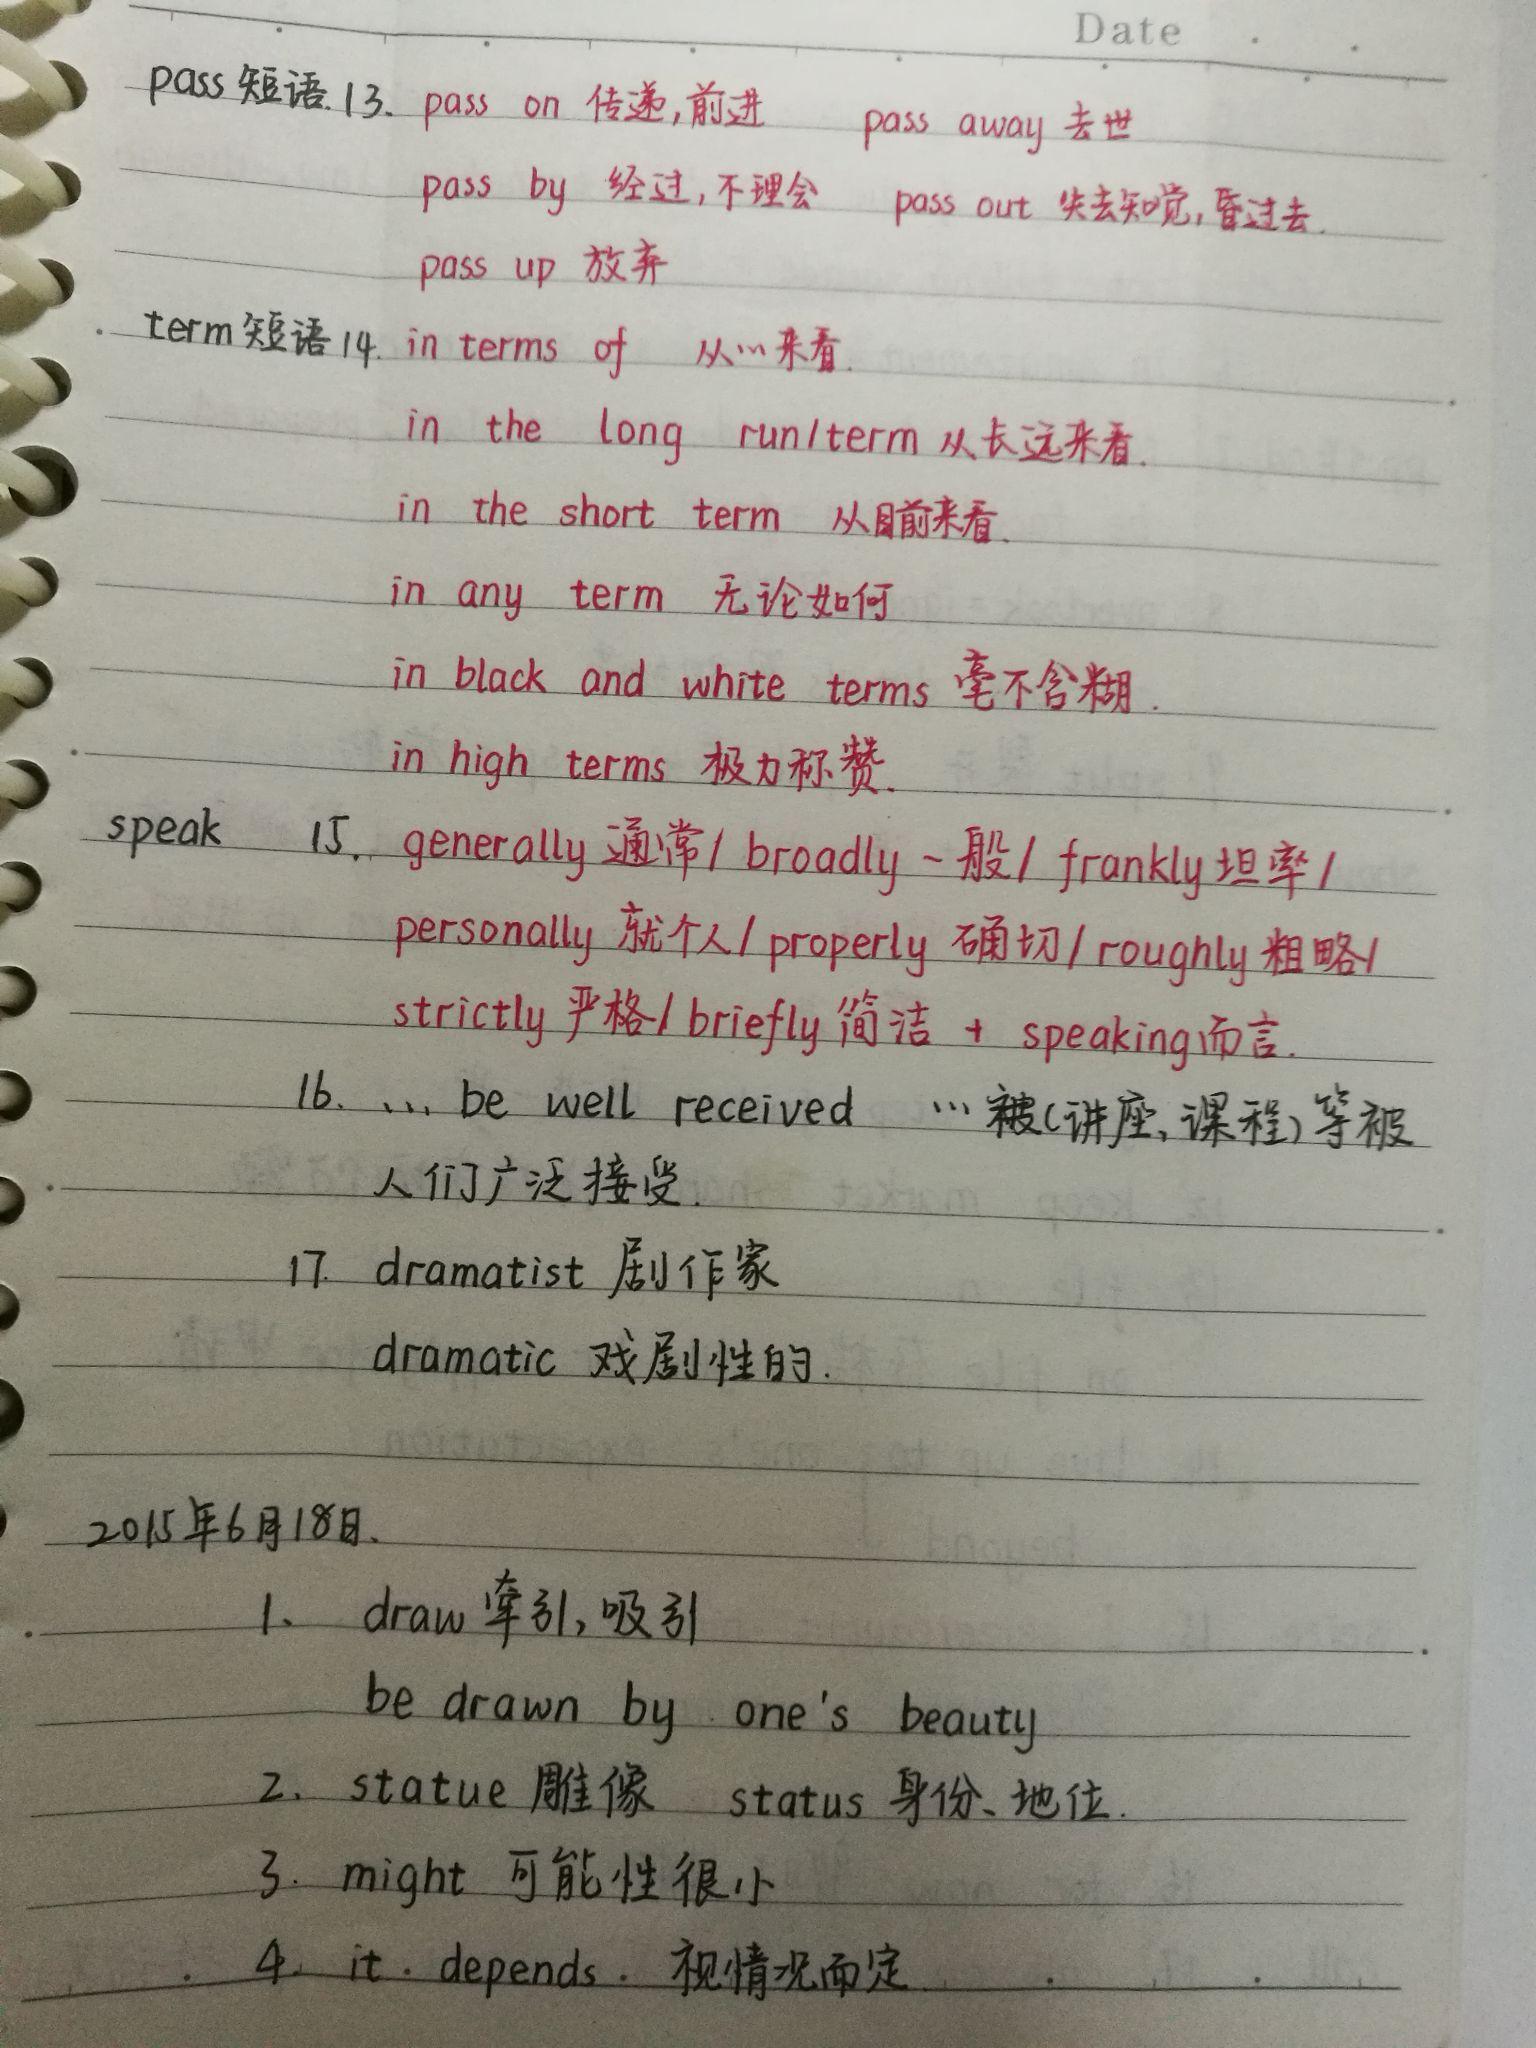 Date
pass短语.13. pass on 传递,前进 pass away 去世
pass by 经过,不理会 pass out 失去知觉,昏过去.
pass up 放弃
term短语14. in terms of 从…来看.
in the long run/term 从长远来看.
in the short term 从目前来看.
in any term 无论如何
in black and white terms 毫不含糊.
in high terms 极力称赞.
speak 15. generally 通常/ broadly 一般/ frankly 坦率/
personally 就个人/ properly 确切/ roughly 粗略/
strictly 严格/ briefly 简洁 + speaking而言.
16. … be well received …被(讲座、课程)等被
人们广泛接受.
17. dramatist 剧作家
dramatic 戏剧性的.
2015年6月18日.
1、 draw 牵引,吸引
be drawn by one's beauty
2. statue 雕像 status 身份、地位.
3. might 可能性很小
4. it depends. 视情况而定